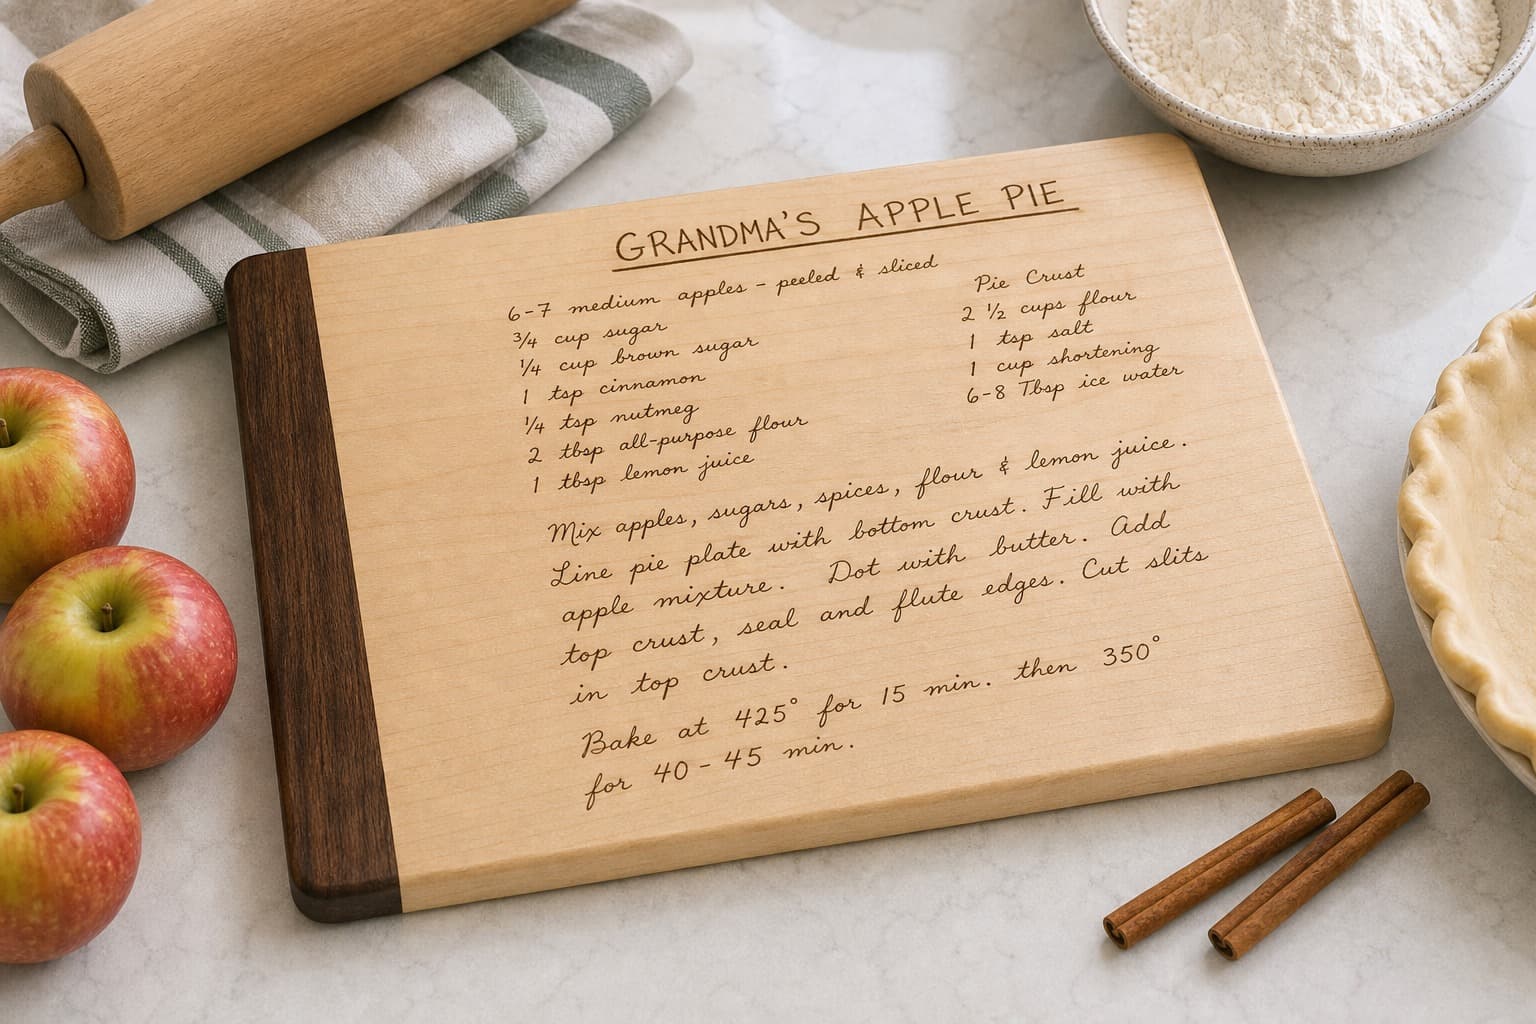 GRANDMA'S APPLE PIE
6-7 medium apples - peeled & sliced
3/4 cup sugar
1/4 cup brown sugar
1 tsp cinnamon
1/4 tsp nutmeg
2 tbsp all-purpose flour
1 tbsp lemon juice
Pie Crust
2 1/2 cups flour
1 tsp salt
1 cup shortening
6-8 Tbsp ice water
Mix apples, sugars, spices, flour & lemon juice.
Line pie plate with bottom crust. Fill with
apple mixture. Dot with butter. Add
top crust, seal and flute edges. Cut slits
in top crust.
Bake at 425° for 15 min. then 350°
for 40-45 min.